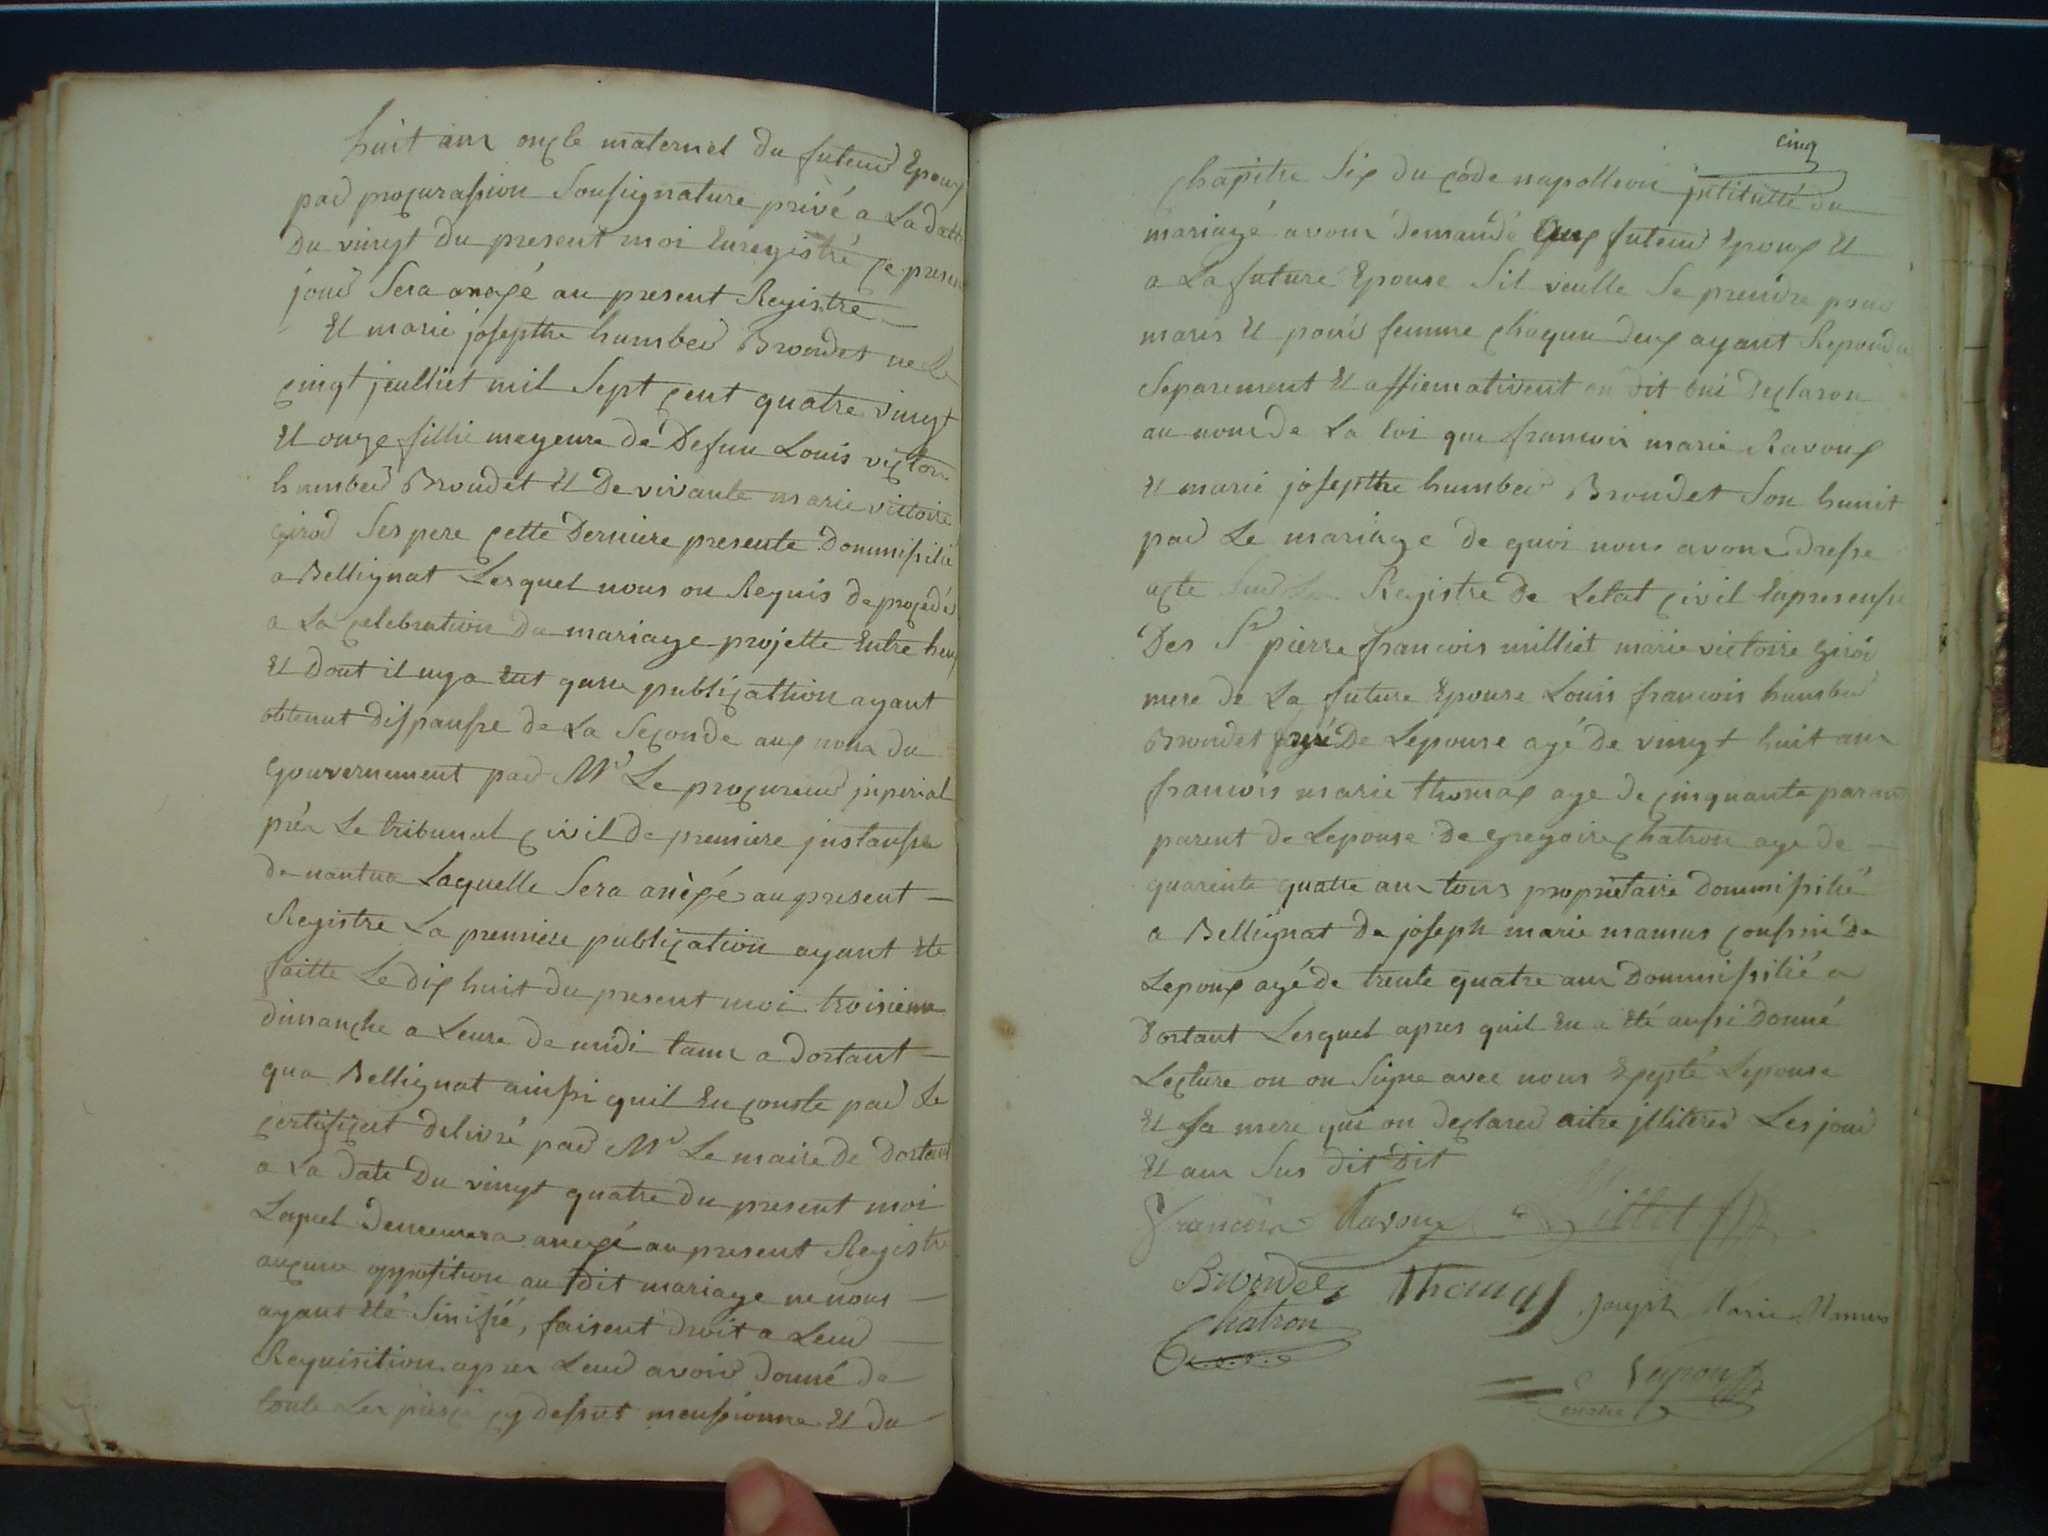 huit ans oncle maternel du futeur Epoux
par procurassion Sousignature privé a La datte
Du vingt du present moi Enregistré ce present
jour Sera anexé au present Registre
Et marie josepthe humber Brondet ne le
cinqt jeulliet mil Sept cent quatre vingt
Et onze fillie mageure de Defun Louis victor
humber Brondet Et De vivante marie victoire
girod Ses pere cette Derniere presente Dommissilié
a Bellignat Lesquel nous on Requis de procedér
a La celebration du mariage projette Entre heux
Et Dont il n'y a eut qune publicathion ayant
obtenut dispansse de La Seconde aux nom du
Gouvernement par Mr Le procureur jnperial
prés Le tribunal civil de premiere jnstansse
de nantua Laquelle Sera anéxé au present
Registre La premiere publication ayant Ete
faitte Le dix huit du present moi troisieme
dimanche a Leure de midi tanr a dortant
qua Bellignat ainssi quil En conste par Le
certificat delivré par Mr Le maire de Dortant
a La date Du vingt quatre du present moi
Lequel Demeurera anexé au present Registre
aucune opposition au dit mariage ne nous
ayant Eté Sinifié, faisent droit a Leur
Requisition apres Leur avoir donné de
toute Les piesse cy dessus menssionne Et du
cinq
chapitre Six du code napolleon jntitullé du
mariagé avons demandé aux futeur Epoux Et
a La future Epouse Sil veulle Se prendre pour
maris Et pour femme chaqun deux ayant Repondu
Separement Et affiemativent on dit oui Declaron
au nom de La loi que francois marie Ravoux
Et marie josepthe humber Brondet Son hunit
par Le mariage de quoi nous avons dresse
acte Sur Les Registre de Letat civil Enpresensse
Des Sr pierre francois milliet marie victoire girod
mere de La future Epouse Louis francois humber
Brondet frere De Lepouse agé de vingt huit ans
francois marie thomas age de cinquante parant
parent de Lepouse de gregoire chatron age de
quarente quatre ans tous proprietaire Dommissilié
a Bellignat de joseph marie mamus coussin De
Lepoux agé de trente quatre ans Dommissilié a
Dortant Lesquel apres quil En a Eté aussi Donné
Lecture on on Signe avec nous Exepté Lepouse
Et Sa mere qui on declarer aitre jlliterer Les jour
Et ans Sus dit Dit
francois Ravoux Millet
Brondet Thomas Joseph Marie Mamus
Chatron